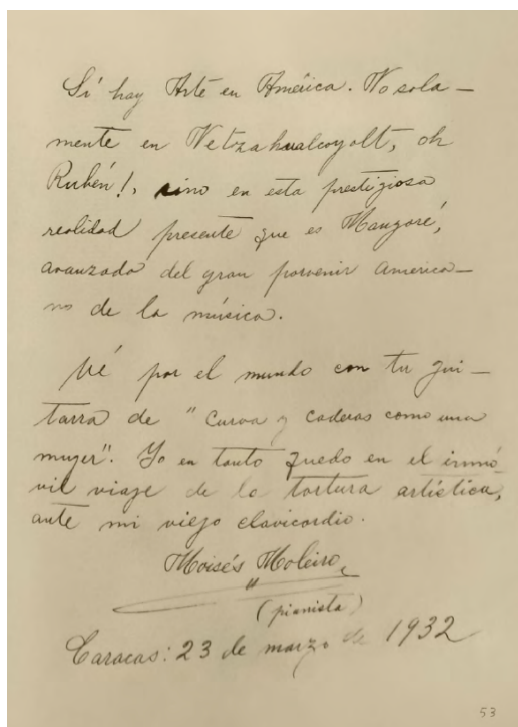 Sí hay Arte en América. No sola—
mente en Netzahualcoyolt, oh
Rubén!, sino en esta prestigiosa
realidad presente que es Mangoré,
avanzada del gran porvenir america—
no de la música.
Vé por el mundo con tu gui—
tarra de "curva y caderas como una
mujer". Yo en tanto quedo en el inmó-
vil viaje de la tortura artística,
ante mi viejo clavicordio.
Moisés Moleiro
(pianista)
Caracas: 23 de marzo de 1932
53